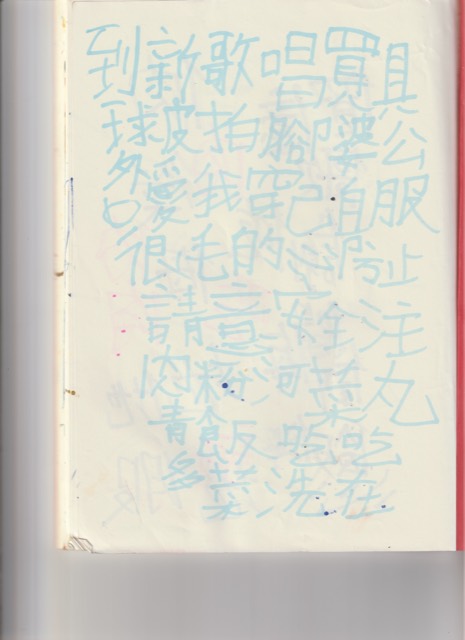 具公服止注丸吃在
買婆自防全菜吃洗
唱腳己心安可
歌拍穿的意粉飯菜
新皮我毛請肉青多
到球愛很
外口